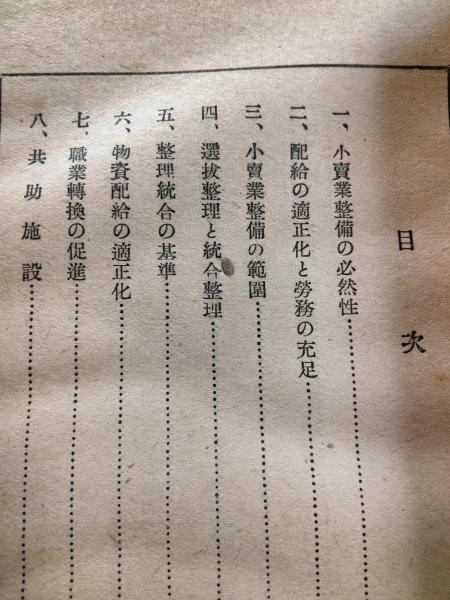 目次
一、小賣業整備の必然性
二、配給の適正化と勞務の充足
三、小賣業整備の範圍
四、選拔整理と統合整理
五、整理統合の基準
六、物資配給の適正化
七、職業轉換の促進
八、共助施設